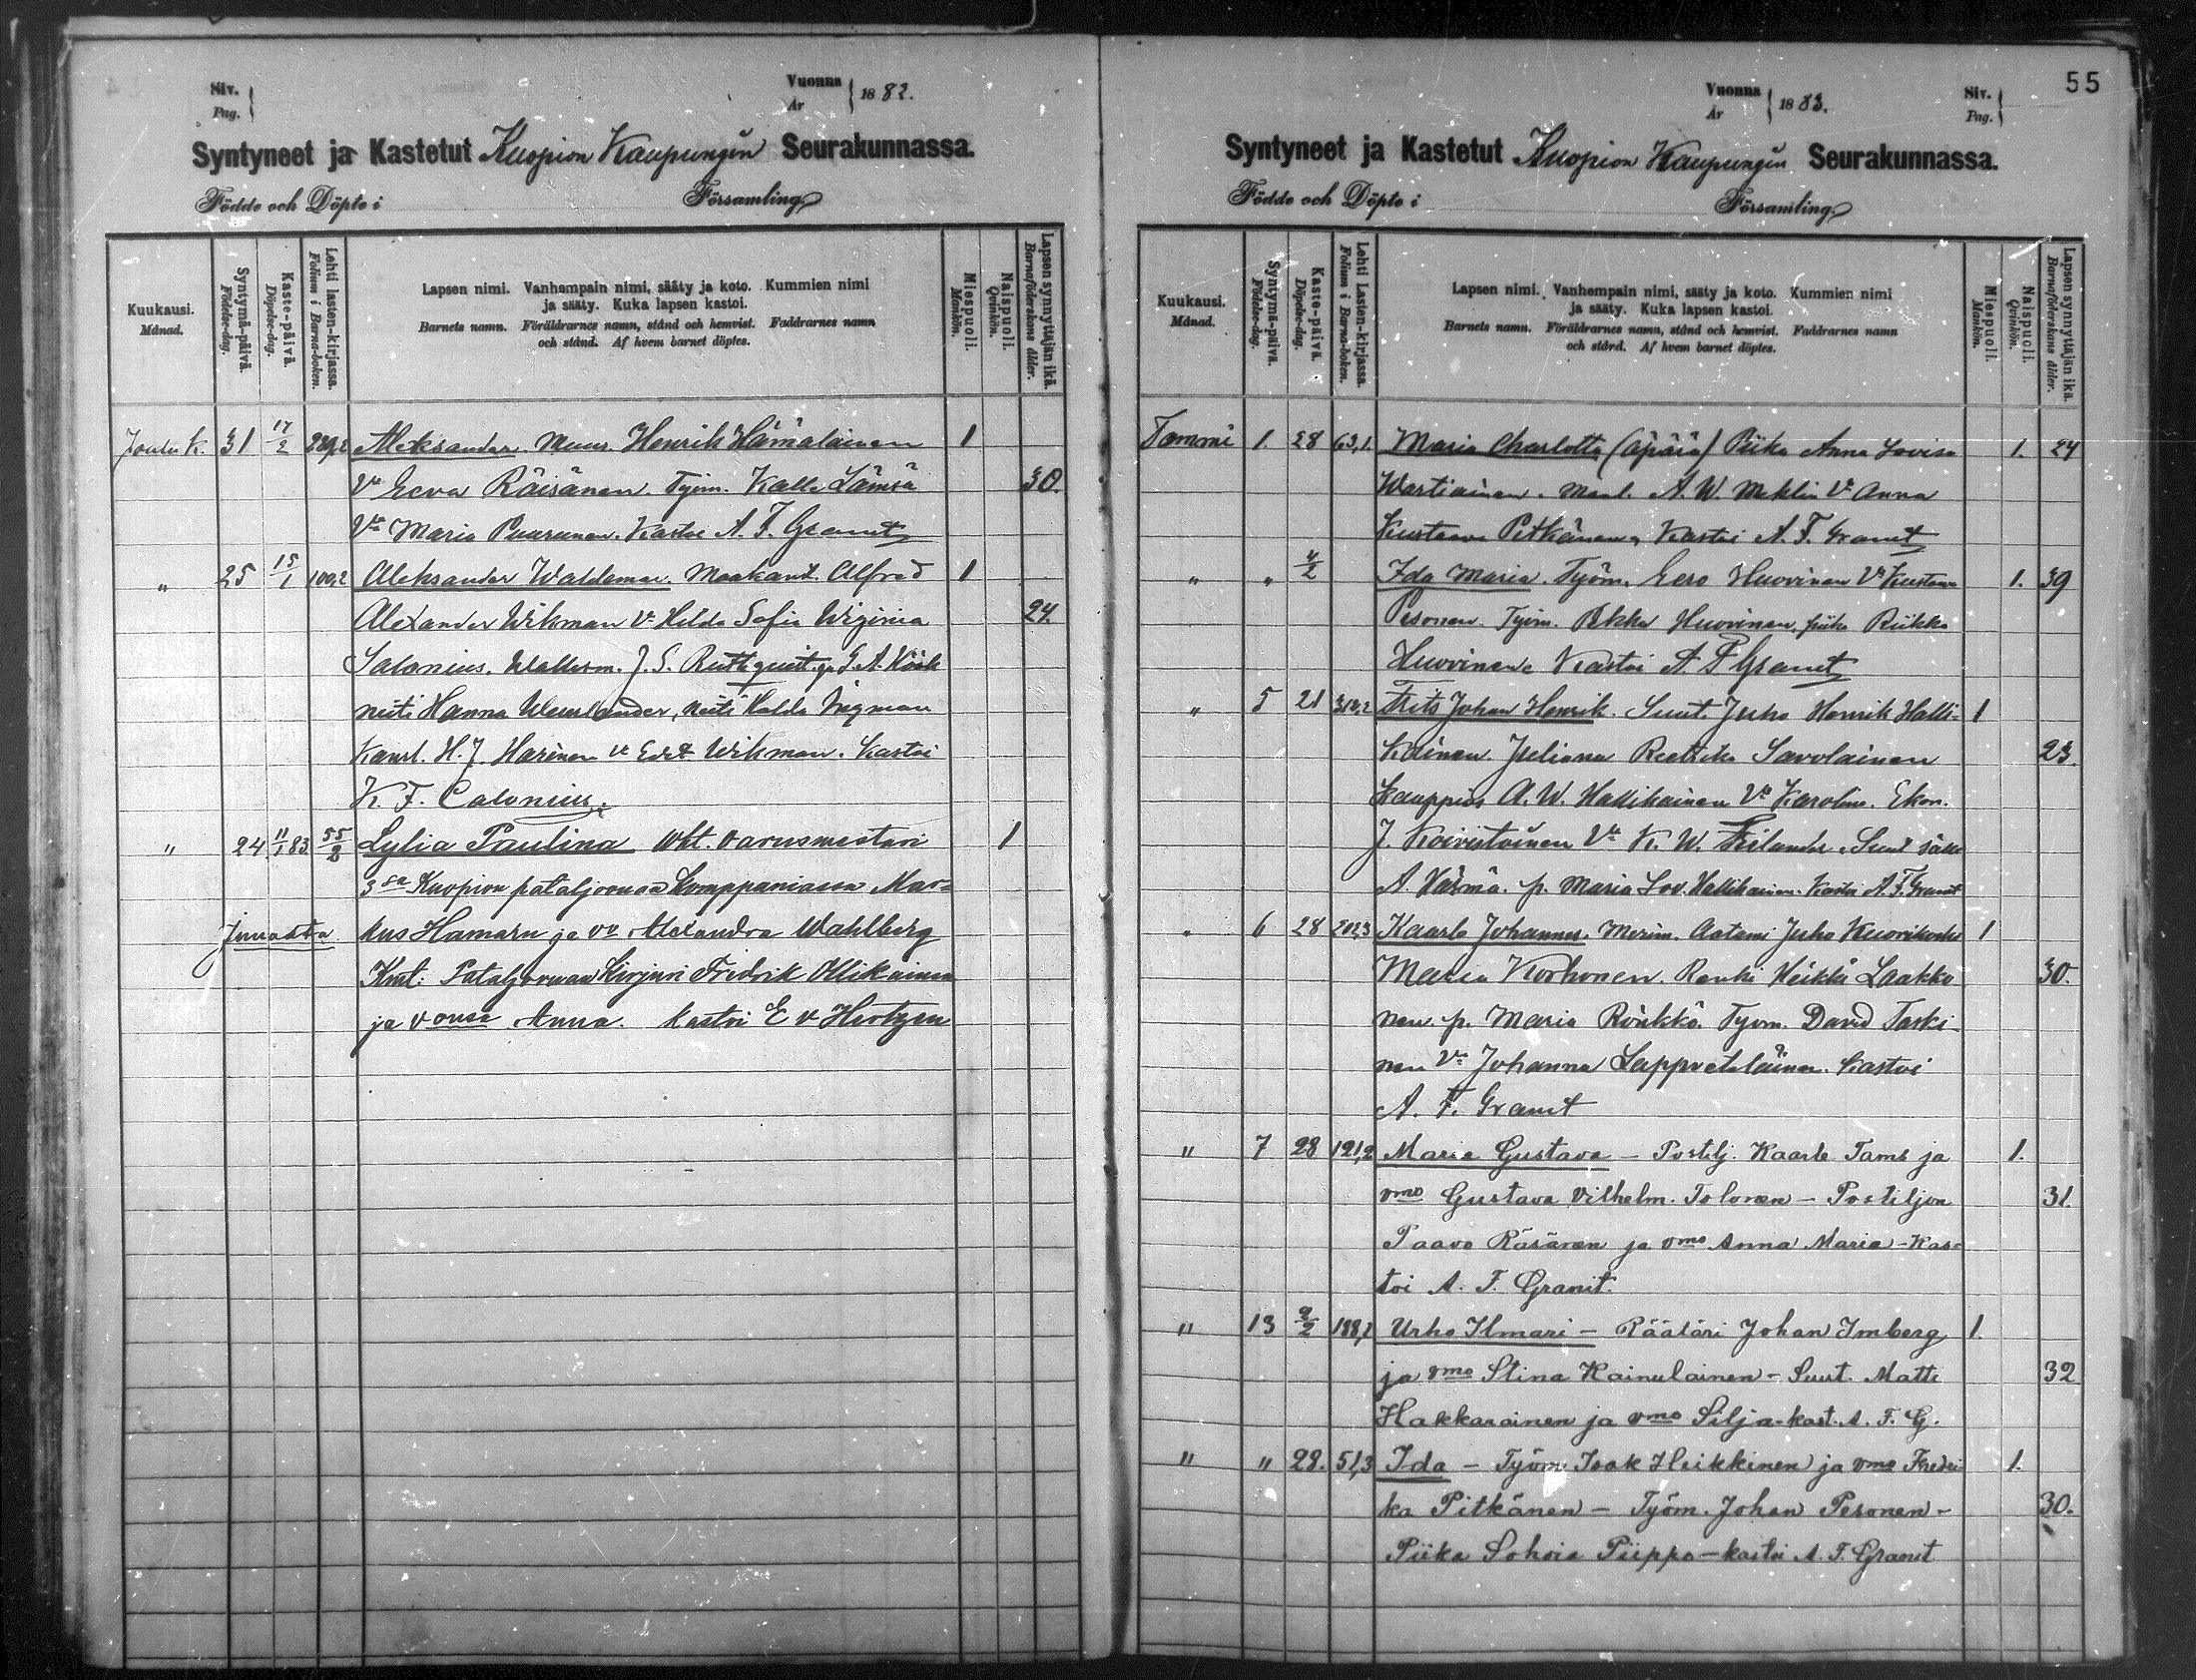 Siv.
Pag.
Vuonna
År
1882.
Syntyneet ja Kastetut Kuopion Kaupungin Seurakunnassa.
Födde och Döpte i Församling
Kuukausi.
Månad.
Syntymä-päivä.
Födelse-dag.
Kaste-päivä.
Döpelse-dag.
Lehti lasten-kirjassa.
Folium i Barna-boken.
Lapsen nimi. Vanhempain nimi, sääty ja koto. Kummien nimi
ja sääty. Kuka lapsen kastoi.
Barnets namn. Föräldrarnes namn, stånd och hemvist. Faddrarnes namn
och stånd. Af hvem barnet döptes.
Miespuoli.
Mankön.
Naispuoli.
Qvinkön.
Lapsen synnyttäjän ikä.
Barnaföderskans ålder.
Joulu K. 31 17/2 Aleksander. Muur. Henrik Hämäläinen 1
Vo Eeva Räisänen. Tyim. Kalle Lämsä 30.
Vo Maria Puurunen. Kastoi A. F. Granit
" 25 15/1 100,2 Aleksander Waldemar. Maakant. Alfred 1
Alexander Wikman Vo Hilda Sofia Wirginia 24.
Salonius. J. S. G. A.
neiti Hanna neiti Hilda
H. J. Harinen Wikman. Kastoi
K. F. Calonius.
" 24 11/1 83 55/2 Lylia Paulina Wkt. varusmestari 1
3sa Kuopion pataljoonan Komppaniassa Mar-
Juuasta kus Hamaru ja vo Alexandra Wahlberg
Kmt: Pataljoonan Kirjuri Fredrik Ollikainen
ja vonsa Anna. Kastoi E v Hertzen
55
Vuonna
År
1883.
Siv.
Pag.
Syntyneet ja Kastetut Kuopion Kaupungin Seurakunnassa.
Födde och Döpte i Församling
Kuukausi.
Månad.
Syntymä-päivä.
Födelse-dag.
Kaste-päivä.
Döpelse-dag.
Lehti Lasten-kirjassa.
Folium i Barna-boken.
Lapsen nimi. Vanhempain nimi, sääty ja koto. Kummien nimi
ja sääty. Kuka lapsen kastoi.
Barnets namn. Föräldrarnes namn, stånd och hemvist. Faddrarnes namn
och stånd. Af hvem barnet döptes.
Miespuoli.
Mankön.
Naispuoli.
Qvinkön.
Lapsen synnyttäjän ikä.
Barnaföderskans ålder.
Tammi 1. 28 63,1. Maria Charlotta (äpärä) Piika Anna Lovisa 1. 24
Wartiainen. Maal. A. W. Meklin Vo Anna
Kustaava Pitkänen. Kastoi A. F. Granit
" " 4/2 Ida Maria. Tyõm. Eero Huovinen Vo Kustava 1. 39
Pesonen. Tyim. Pekka Huovinen, piika Riikka
Huovinen. Kastoi A. F Granit
" 5 21 312,2 Frits Johan Henrik. Suut. Juho Henrik Halli- 1
kainen. Juliana Savolainen 23.
Kauppias A. W. Hallikainen Vo Karolina. Ekon.
J. Koivistoinen Vo K. W. Suut
A. Härmä. p. Maria Lov. Hallikainen. Kastoi A. F. Granit
" 6 28 202,3 Kaarlo Johannes. Merim. Aatami Juho Kuorikoski 1
Maria Korhonen. Renki Heikki Laakko- 30.
nen. p. Maria Rönkkö. Tyõm. David Taski-
nen Vo Johanna Lappvetelainen. Kastoi
A. F. Granit
" 7 28 121,2 Maria Gustava – Postilj. Kaarle Tams ja 1.
vmo Gustava Vilhelm. Tolonen – Postiljon 31.
Paavo Räsänen ja vmo Anna Maria – Kas-
toi A. F. Granit.
" 13 9/2 188,2 Urho Ilmari – Räätäri Johan Imberg 1.
ja vmo Stina Kainulainen – Suut. Matti 32
Hakkarainen ja vmo Silja – kast. A. F. G.
" " 28. 51,3 Ida – Työm Isak Heikkinen ja vmo Fredri 1.
ka Pitkänen – Työm. Johan Pesonen – 30.
Piika Sohvia Piippo – kastoi A. F. Granit